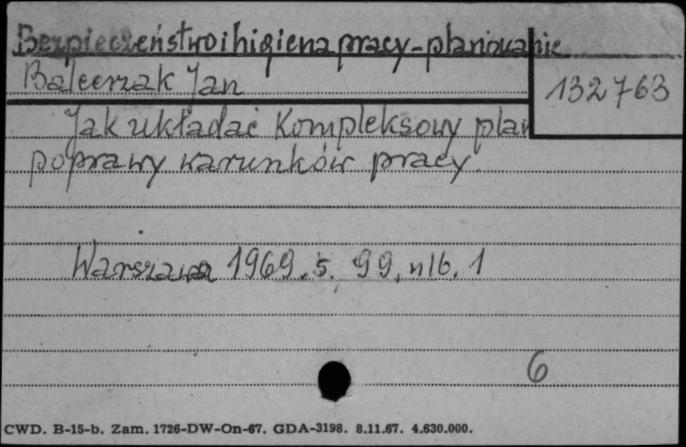 Bezpieczeństwo i higiena pracy - planowanie
Balcerzak Jan
132763
Jak układać kompleksowy plan
poprawy warunków pracy.
Warszawa 1969, s. 99, nlb. 1
6
CWD. B-15-b. Zam. 1726-DW-On-67. GDA-3198. 8.11.67. 4.630.000.